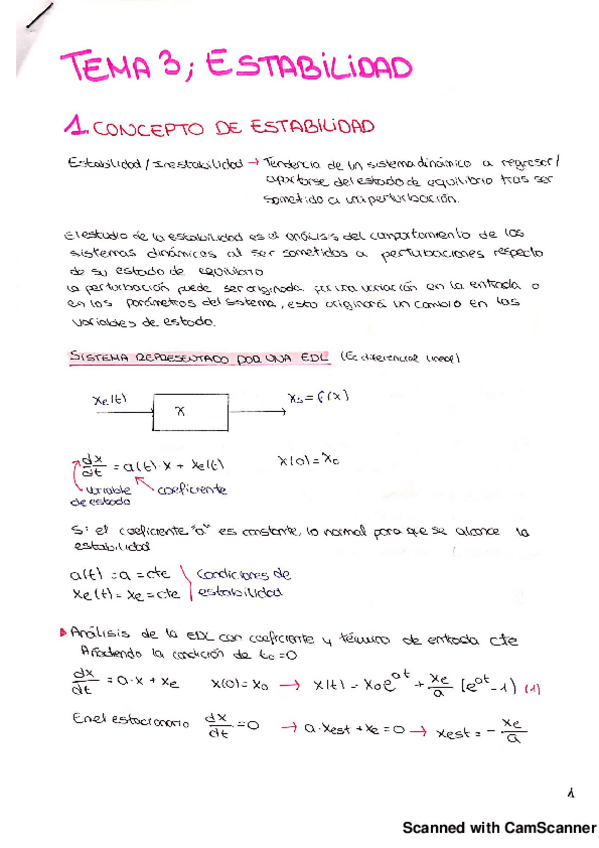 TEMA 3; ESTABILIDAD
1. CONCEPTO DE ESTABILIDAD
Estabilidad / Inestabilidad → Tendencia de un sistema dinámico a regresar /
apartarse del estado de equilibrio tras ser
sometido a una perturbación.
El estudio de la estabilidad es el análisis del comportamiento de los
sistemas dinámicos al ser sometidos a perturbaciones respecto
de su estado de equilibrio
La perturbación puede ser originada por una variación en la entrada o
en los parámetros del sistema, esto originará un cambio en las
variables de estado.
SISTEMA REPRESENTADO POR UNA EDL (Ec diferencial lineal)
xe(t) x xs = f(x)
dx/dt = a(t)·x + xe(t) x(0) = x0
variable de estado coeficiente
Si el coeficiente "a" es constante, lo normal para que se alcance la
estabilidad
a(t) = a = cte Condiciones de
xe(t) = xe = cte estabilidad
Análisis de la EDL con coeficiente y término de entrada cte
Añadiendo la condición de to = 0
dx/dt = a·x + xe x(0) = x0 → x(t) = x0 e^at + xe/a [e^at - 1) (1)
En el estacionario dx/dt = 0 → a·xest + xe = 0 → xest = - xe/a
1
Scanned with CamScanner